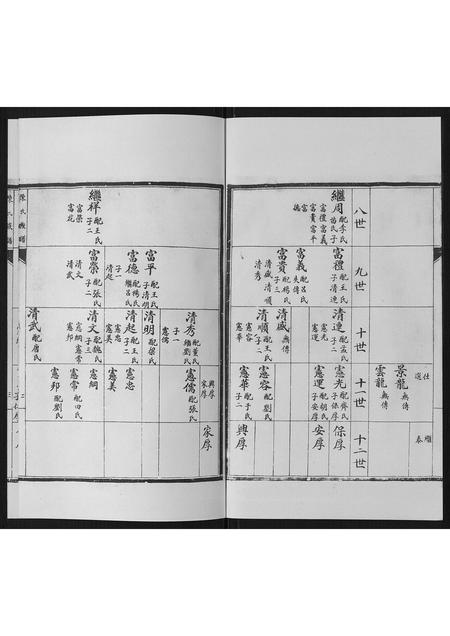 八世
繼周 配李氏
子五
富禮 富義
富貴 富平
富德
繼祥 配王氏
子二
富榮
富花
九世
富禮 配王氏
子 清連
富義 配氏
失傳
富貴 配楊氏
子三
清盛 清順
清秀
富平 配王氏
子 清明
富德 配楊氏
繼呂氏
子一
清起
富榮 配張氏
子二
清文
清武
十世
清連 配孟氏
子二
憲光
憲運
清盛 無傳
清順 配王氏
子二
憲容
憲華
清秀 配董氏
繼劉氏
子一
憲儒
清明 配梁氏
清起 配王氏
子二
憲忠
憲美
清文 配魏氏
子三
憲綱 憲常
憲邦
清武 配唐氏
仕選
十一世
景龍 無傳
雲龍 無傳
憲光 配齊氏
子 保厚
憲運 配胡氏
子 安厚
憲容 配劉氏
憲華 配于氏
子二
興厚
家厚
憲儒 配張氏
憲忠
憲美
憲綱
憲常 配田氏
憲邦 配劉氏
繼泰
十二世
保厚
安厚
興厚
家厚